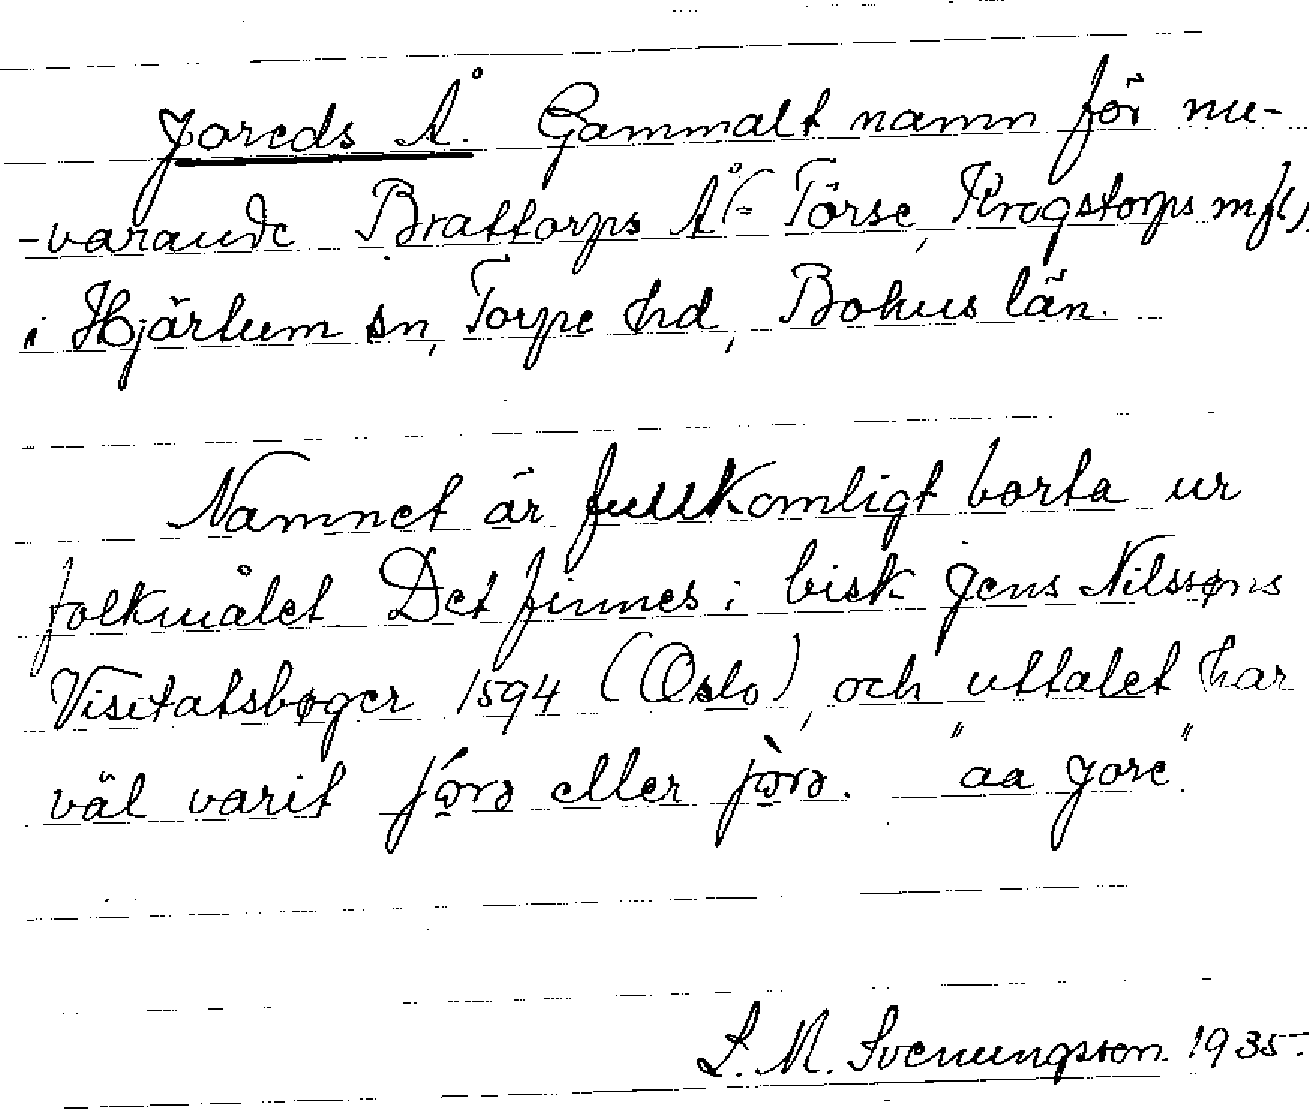 Joreds Å. Gammalt namn för nu-
-varande Brattorps Å (= Törse, Krogstorps m fl)
i Hjärtum sn, Torpe hd, Bohus län.
Namnet är fullkomligt borta ur
folkmålet Det finnes i bisk Jens Nilssøns
Visitatsbøger 1594 (Oslo), och uttalet har
väl varit eller "aa Jore".
S. M. Svenungsson 1935.